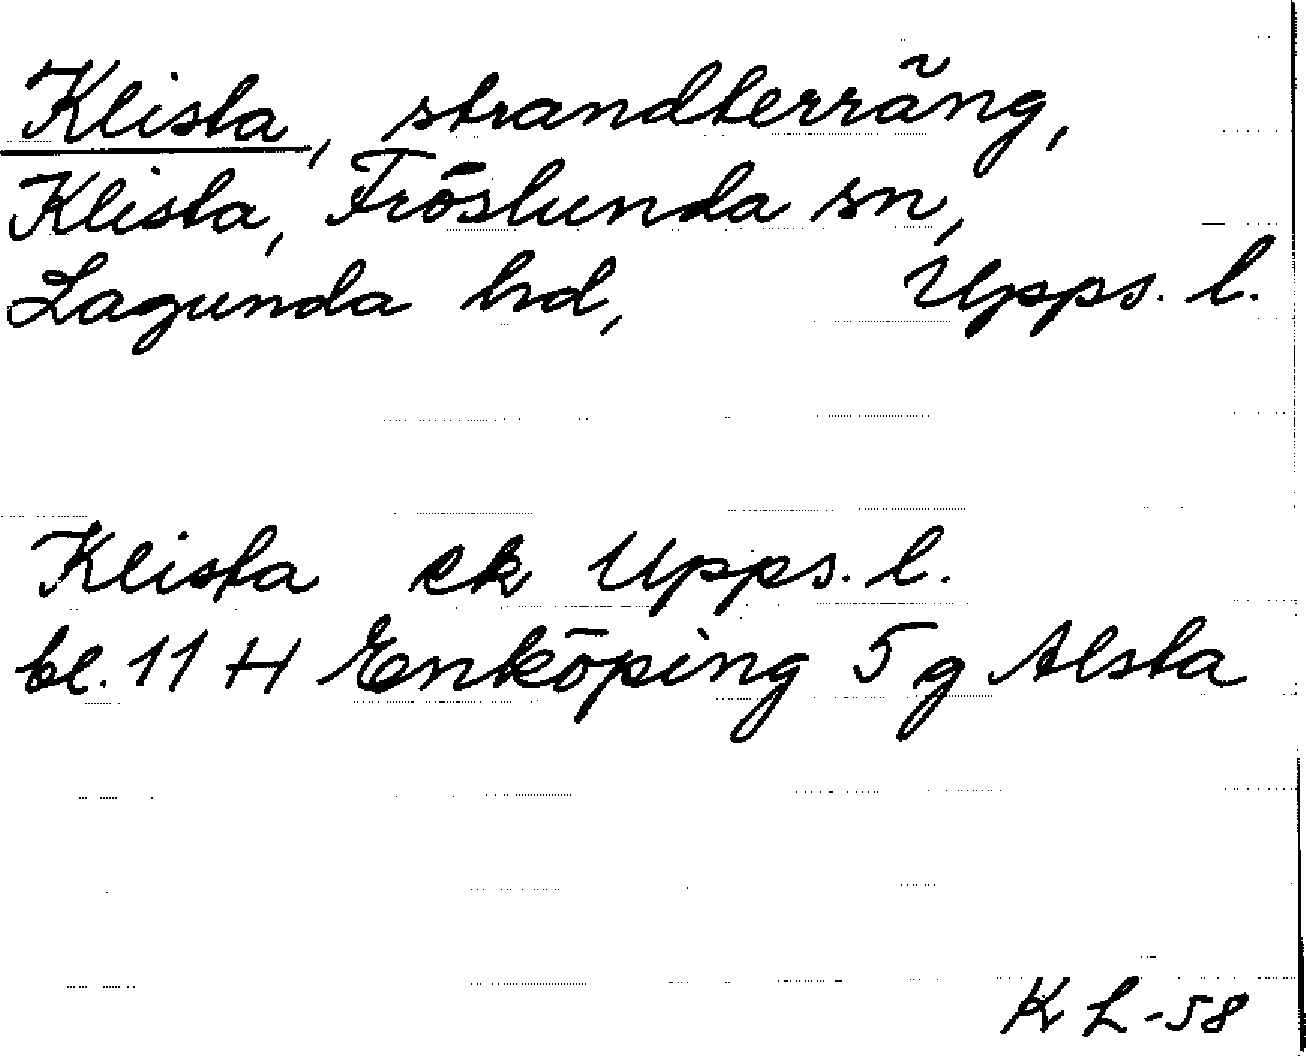 Klista, strandterräng,
Klista, Fröslunda sn,
Lagunda hd, Upps. l.
Klista ek Upps. l.
bl. 11 H Enköping 5 g Alsta
K L -58